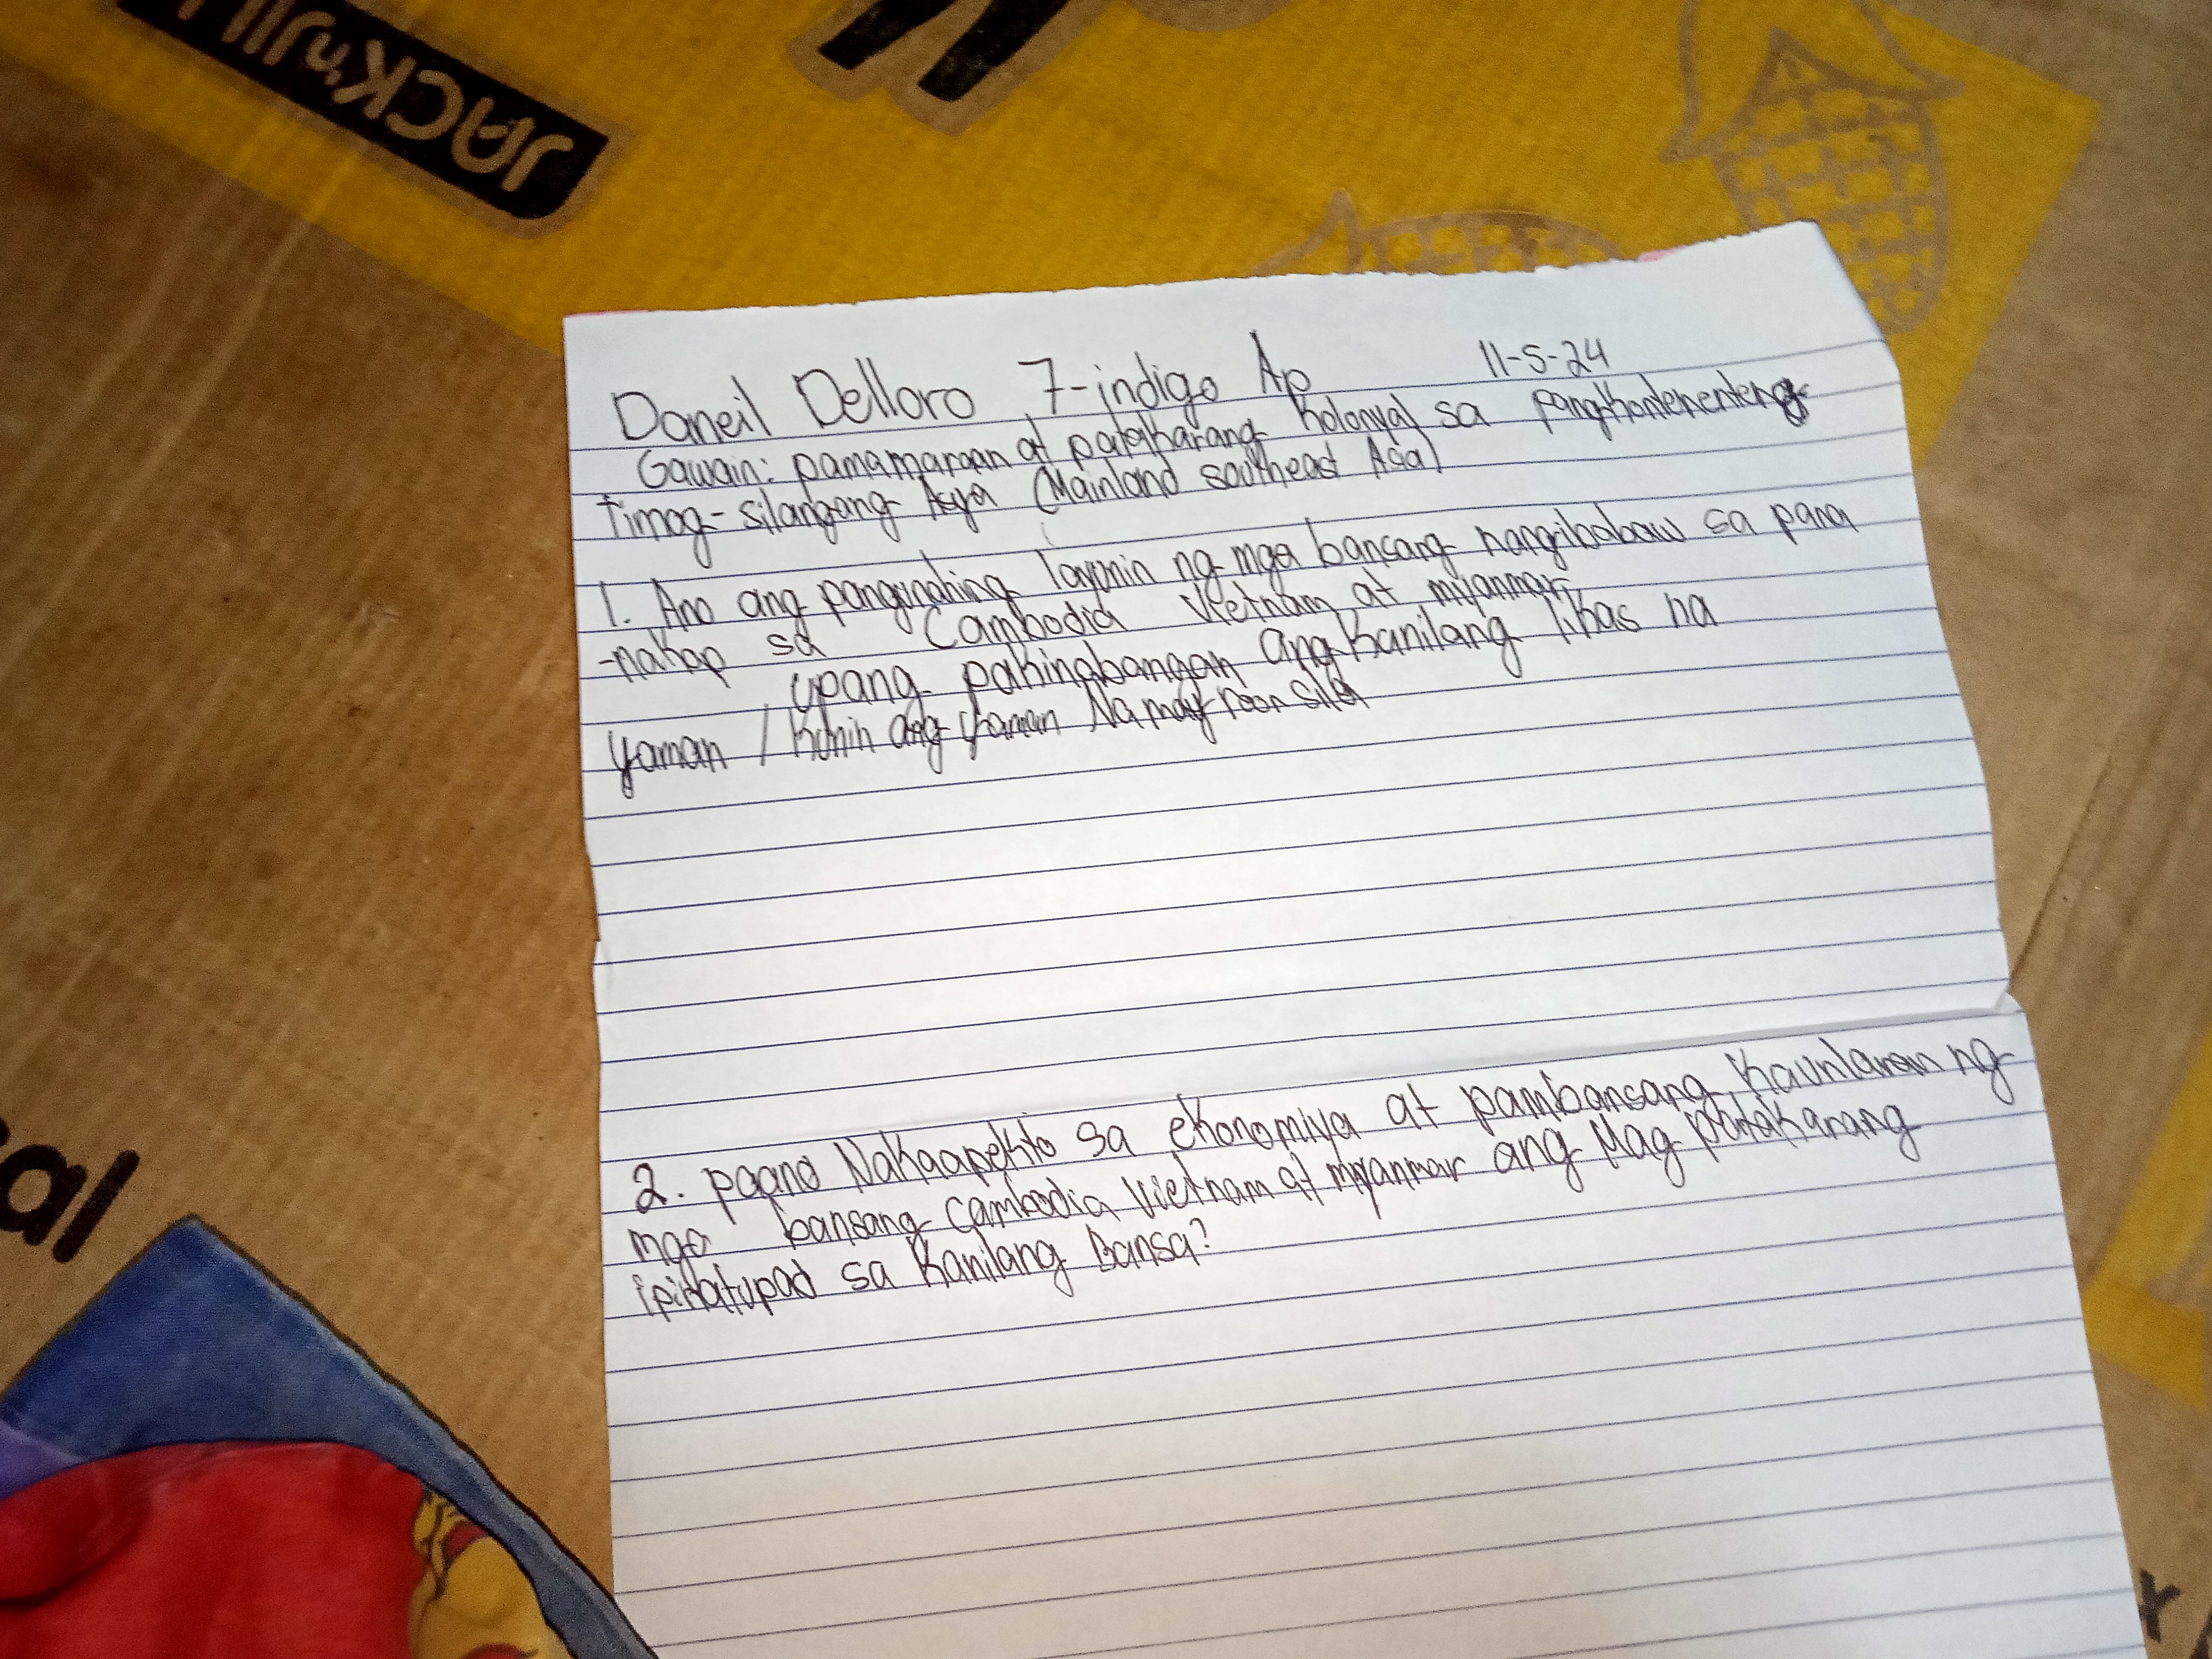 JACK'n JILL
Daneil Delloro 7-indigo Ap 11-5-24
Gawain: pamamaraan at patakarang kolonyal sa pangkontenenteng
timog-silangang Asya (Mainland southeast Asia)
1. Ano ang pangunahing layunin ng mga bansang nangibabaw sa pana
-nakop sa Cambodia Vietnam at myanmar
upang pakinabangan ang kanilang likas na
yaman / kunin ang yaman Na mayroon sila
2. paano Nakaapekto sa ekonomiya at pambansang kaunlaran ng
mga bansang Cambodia Vietnam at myanmar ang Mag patakarang
ipinatupad sa kanilang Bansa?